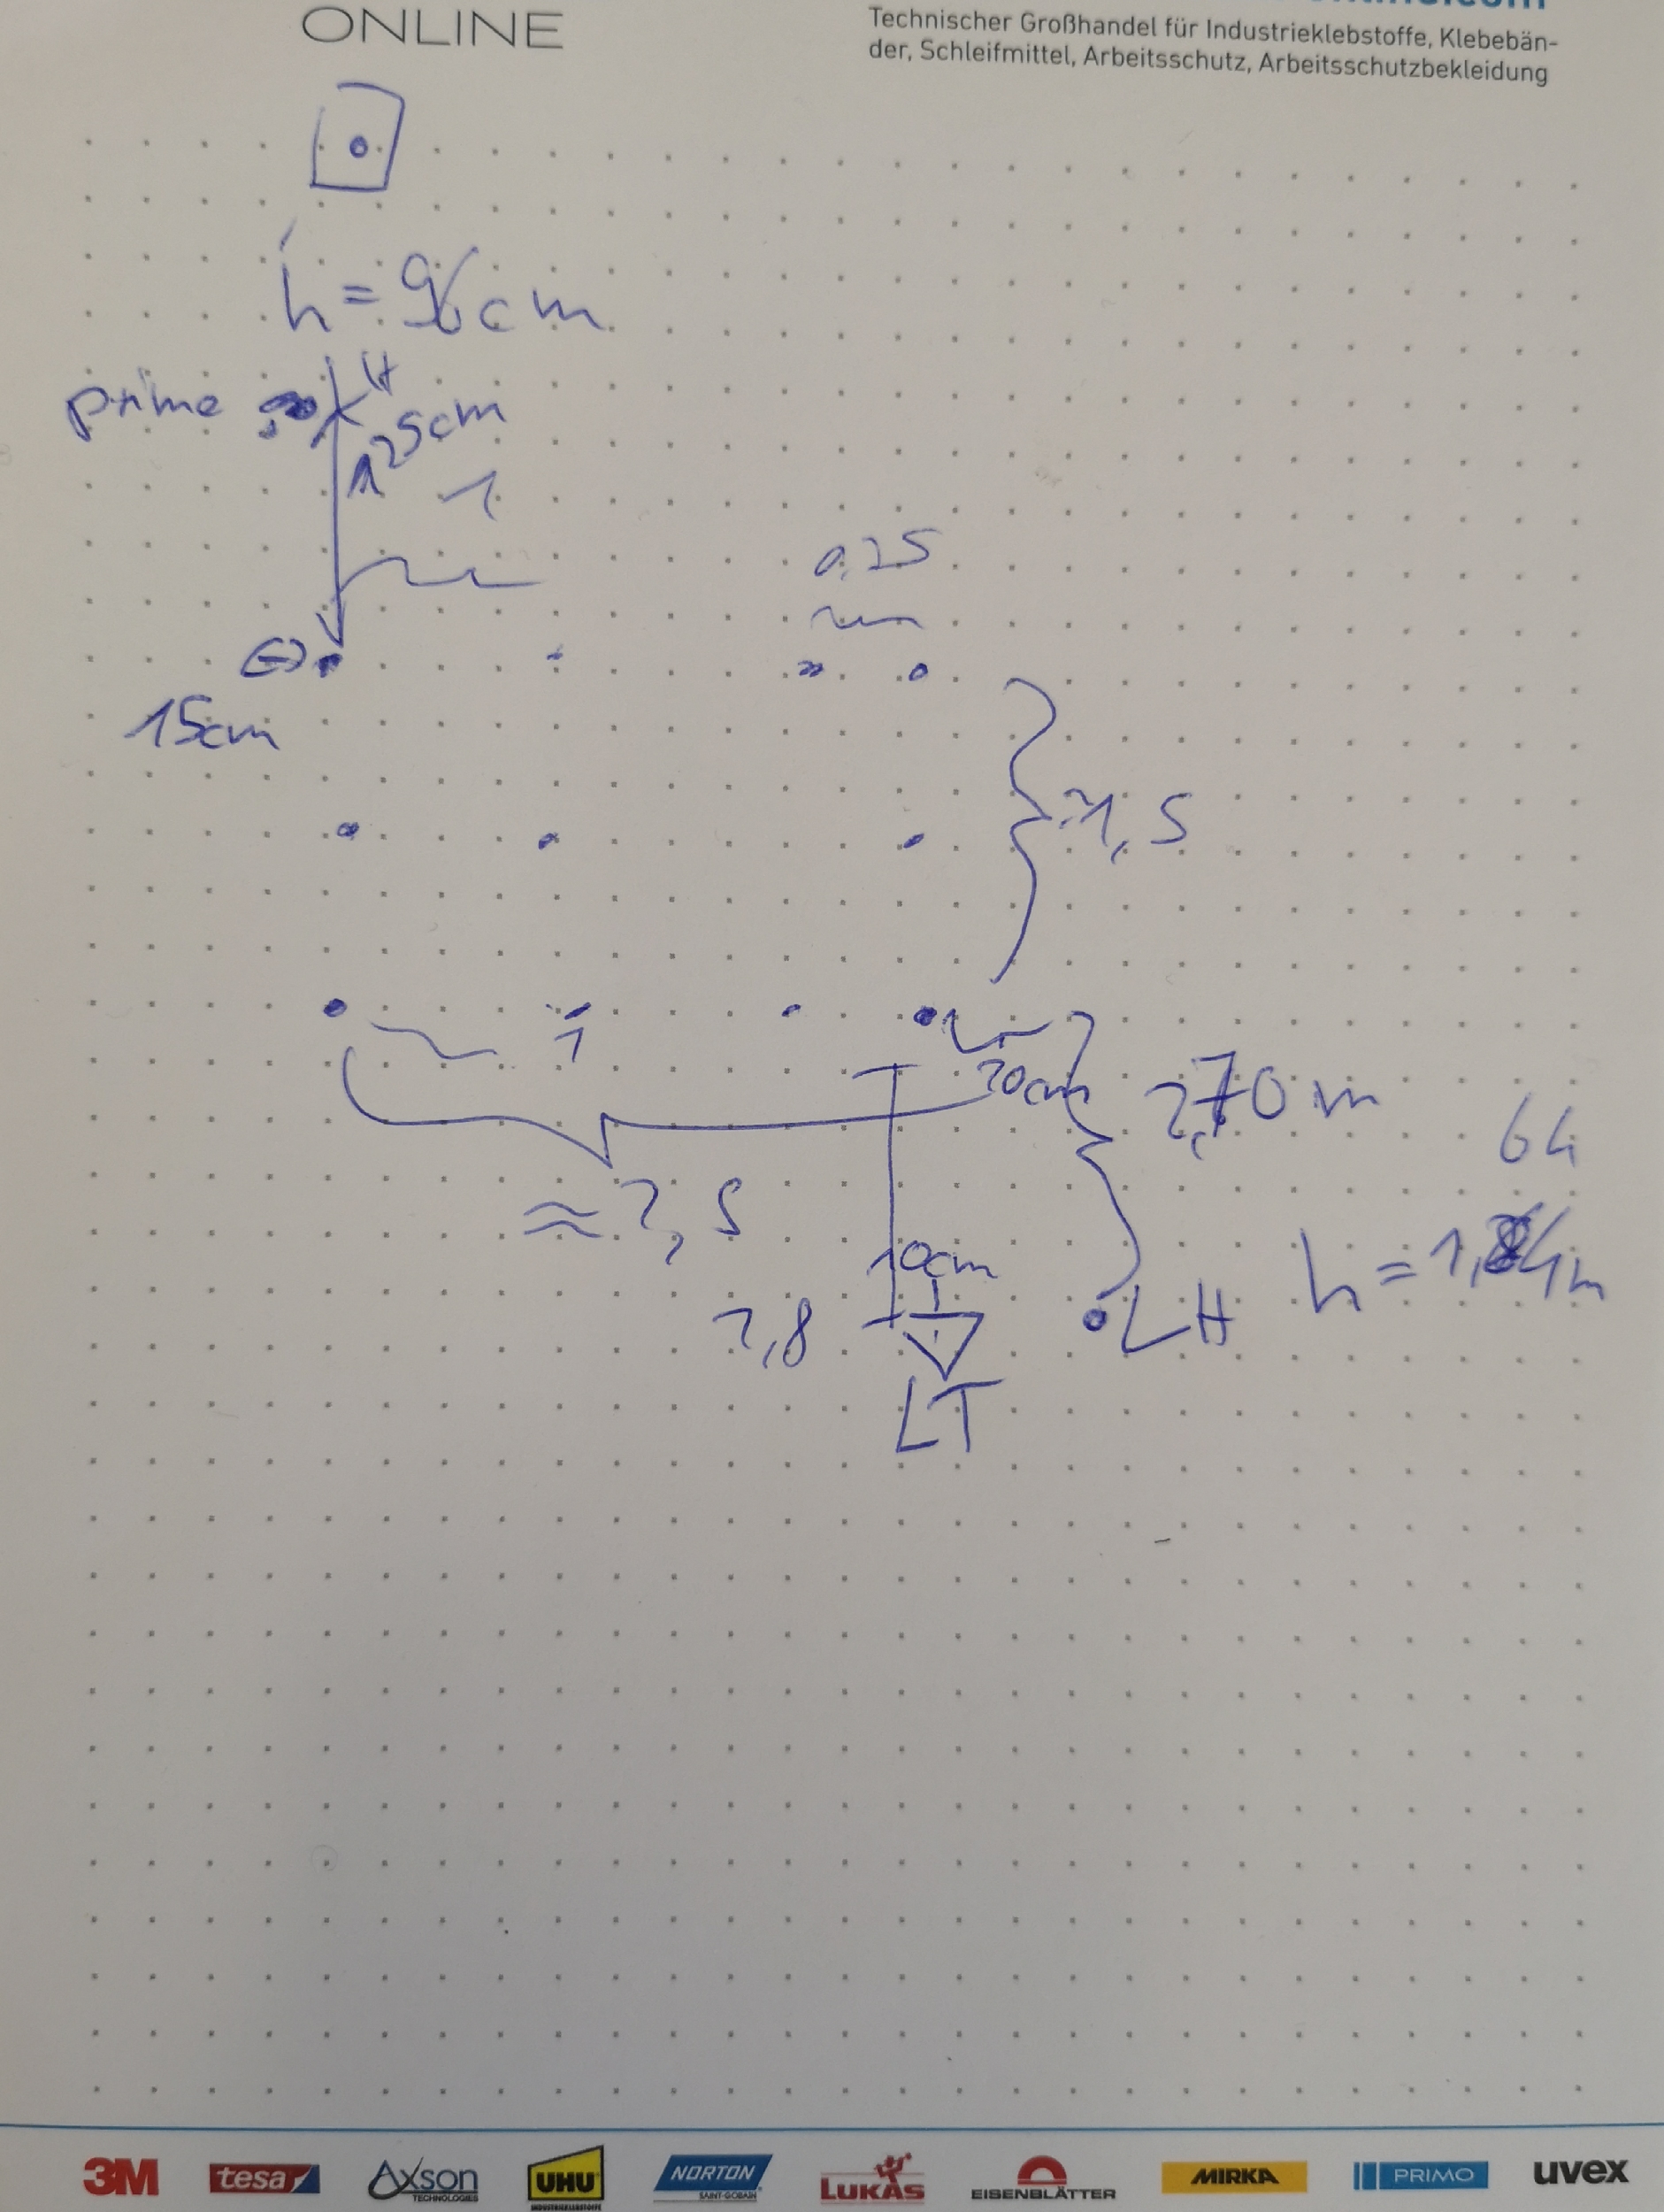 ONLINE
Technischer Großhandel für Industrieklebstoffe, Klebebän-
der, Schleifmittel, Arbeitsschutz, Arbeitsschutzbekleidung
h = 96cm
prime
125cm
1
0,25
15cm
≈1,5
1
20cm
2,70 m
64
≈ 2,5
10cm
h = 1,84m
2,8
LH
LT
3M
tesa
Axson
TECHNOLOGIES
UHU
INDUSTRIEKLEBSTOFFE
NORTON
SAINT-GOBAIN
LUKAS
EISENBLÄTTER
MIRKA
PRIMO
uvex